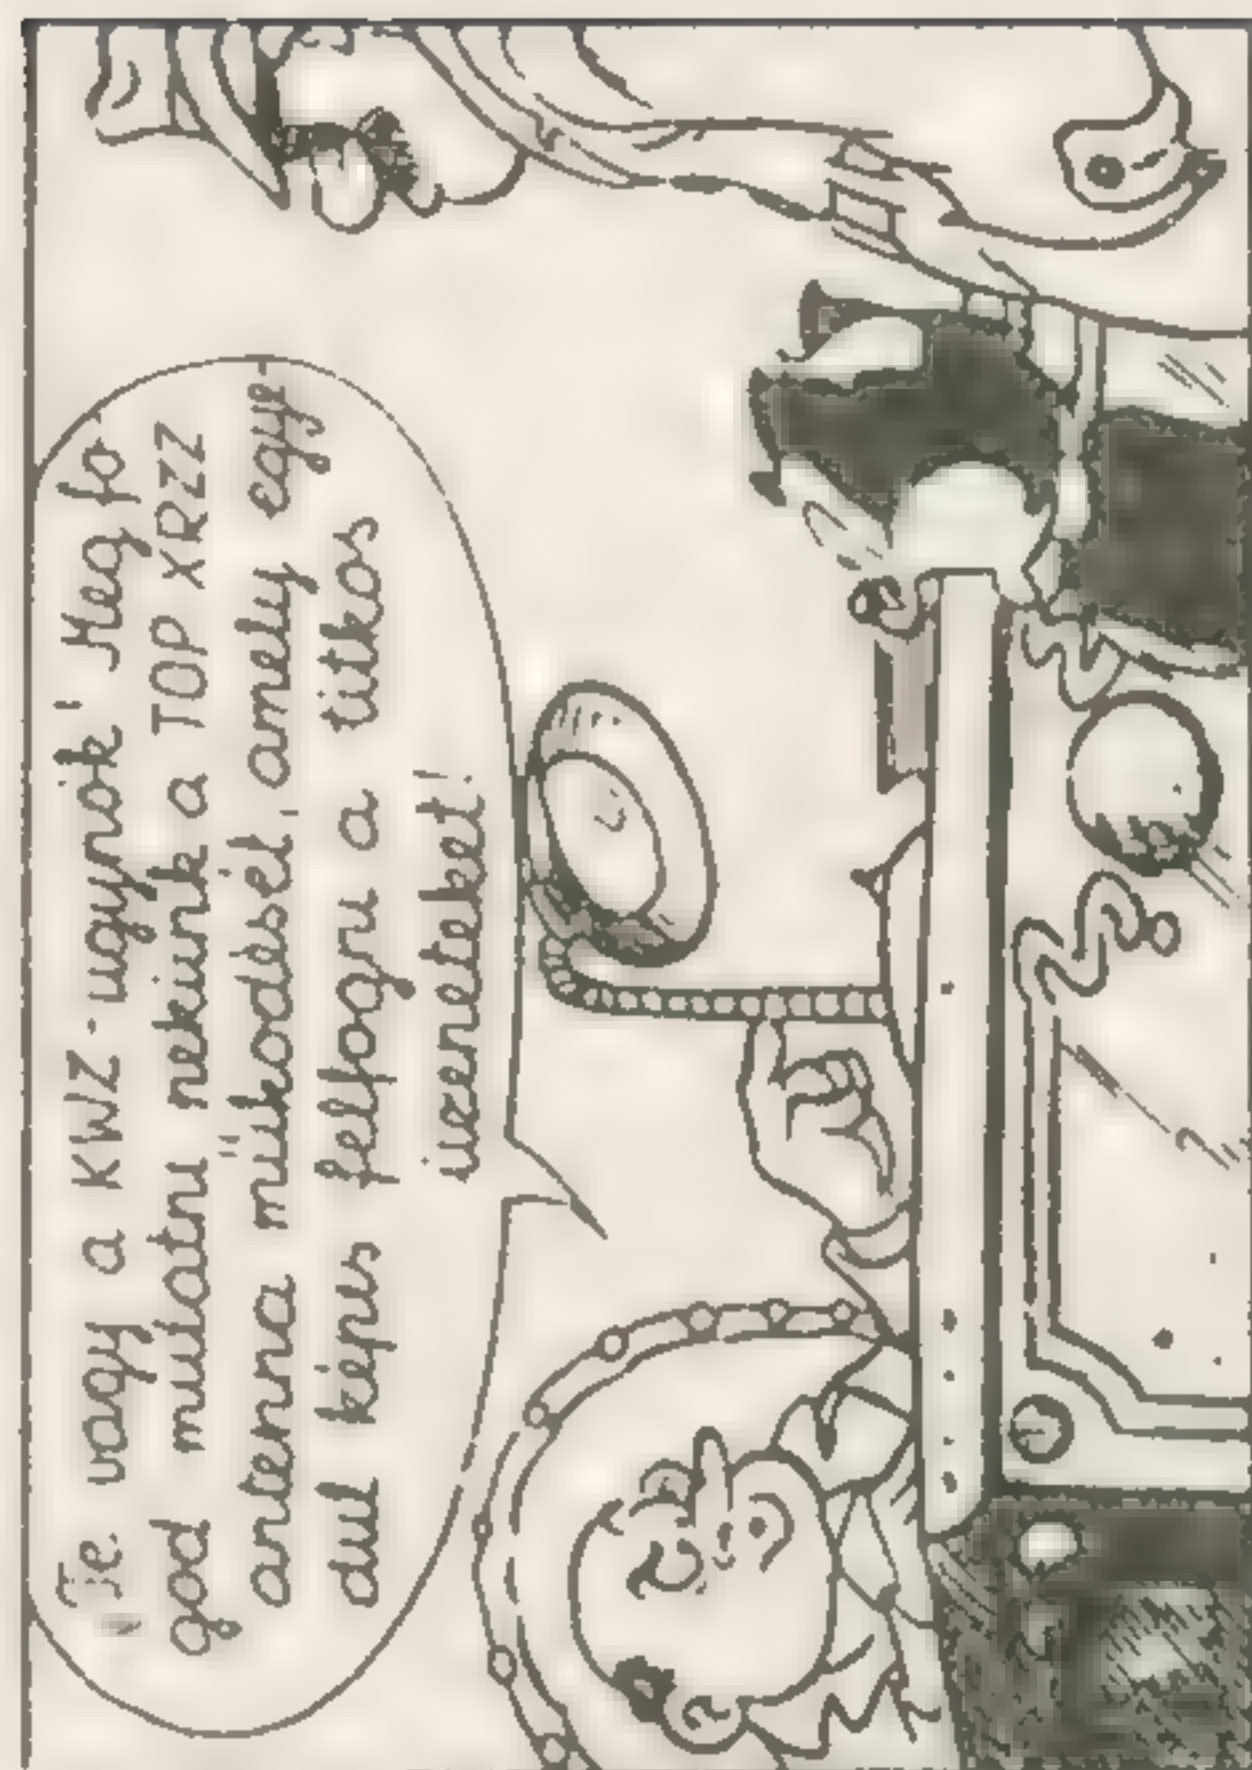 Te vagy a KWZ-ügynök! Meg fo
god mutatni nekünk a TOP XRZZ
antenna működését, amely egye-
dül képes felfogni a titkos
üzeneteket!